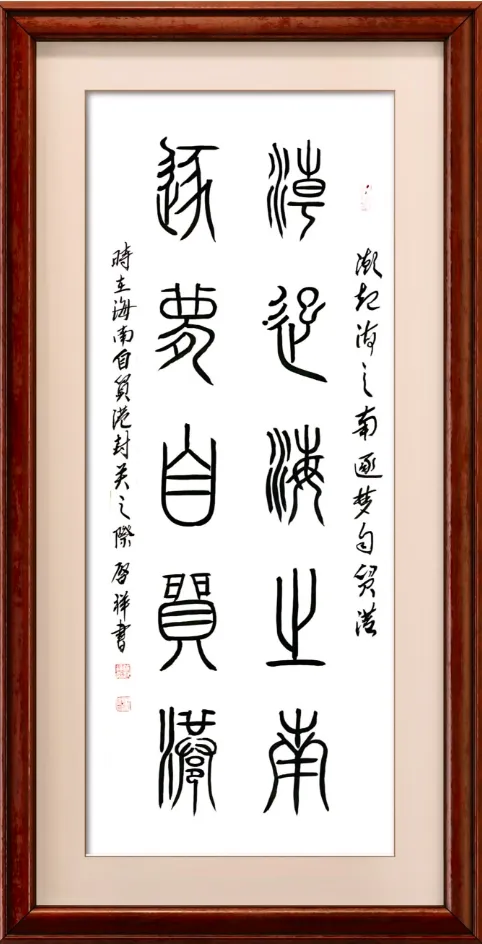 潮起海之南逐梦自贸港
潮起海之南
逐夢自貿港
時在海南自贸港封关之際啓祥書